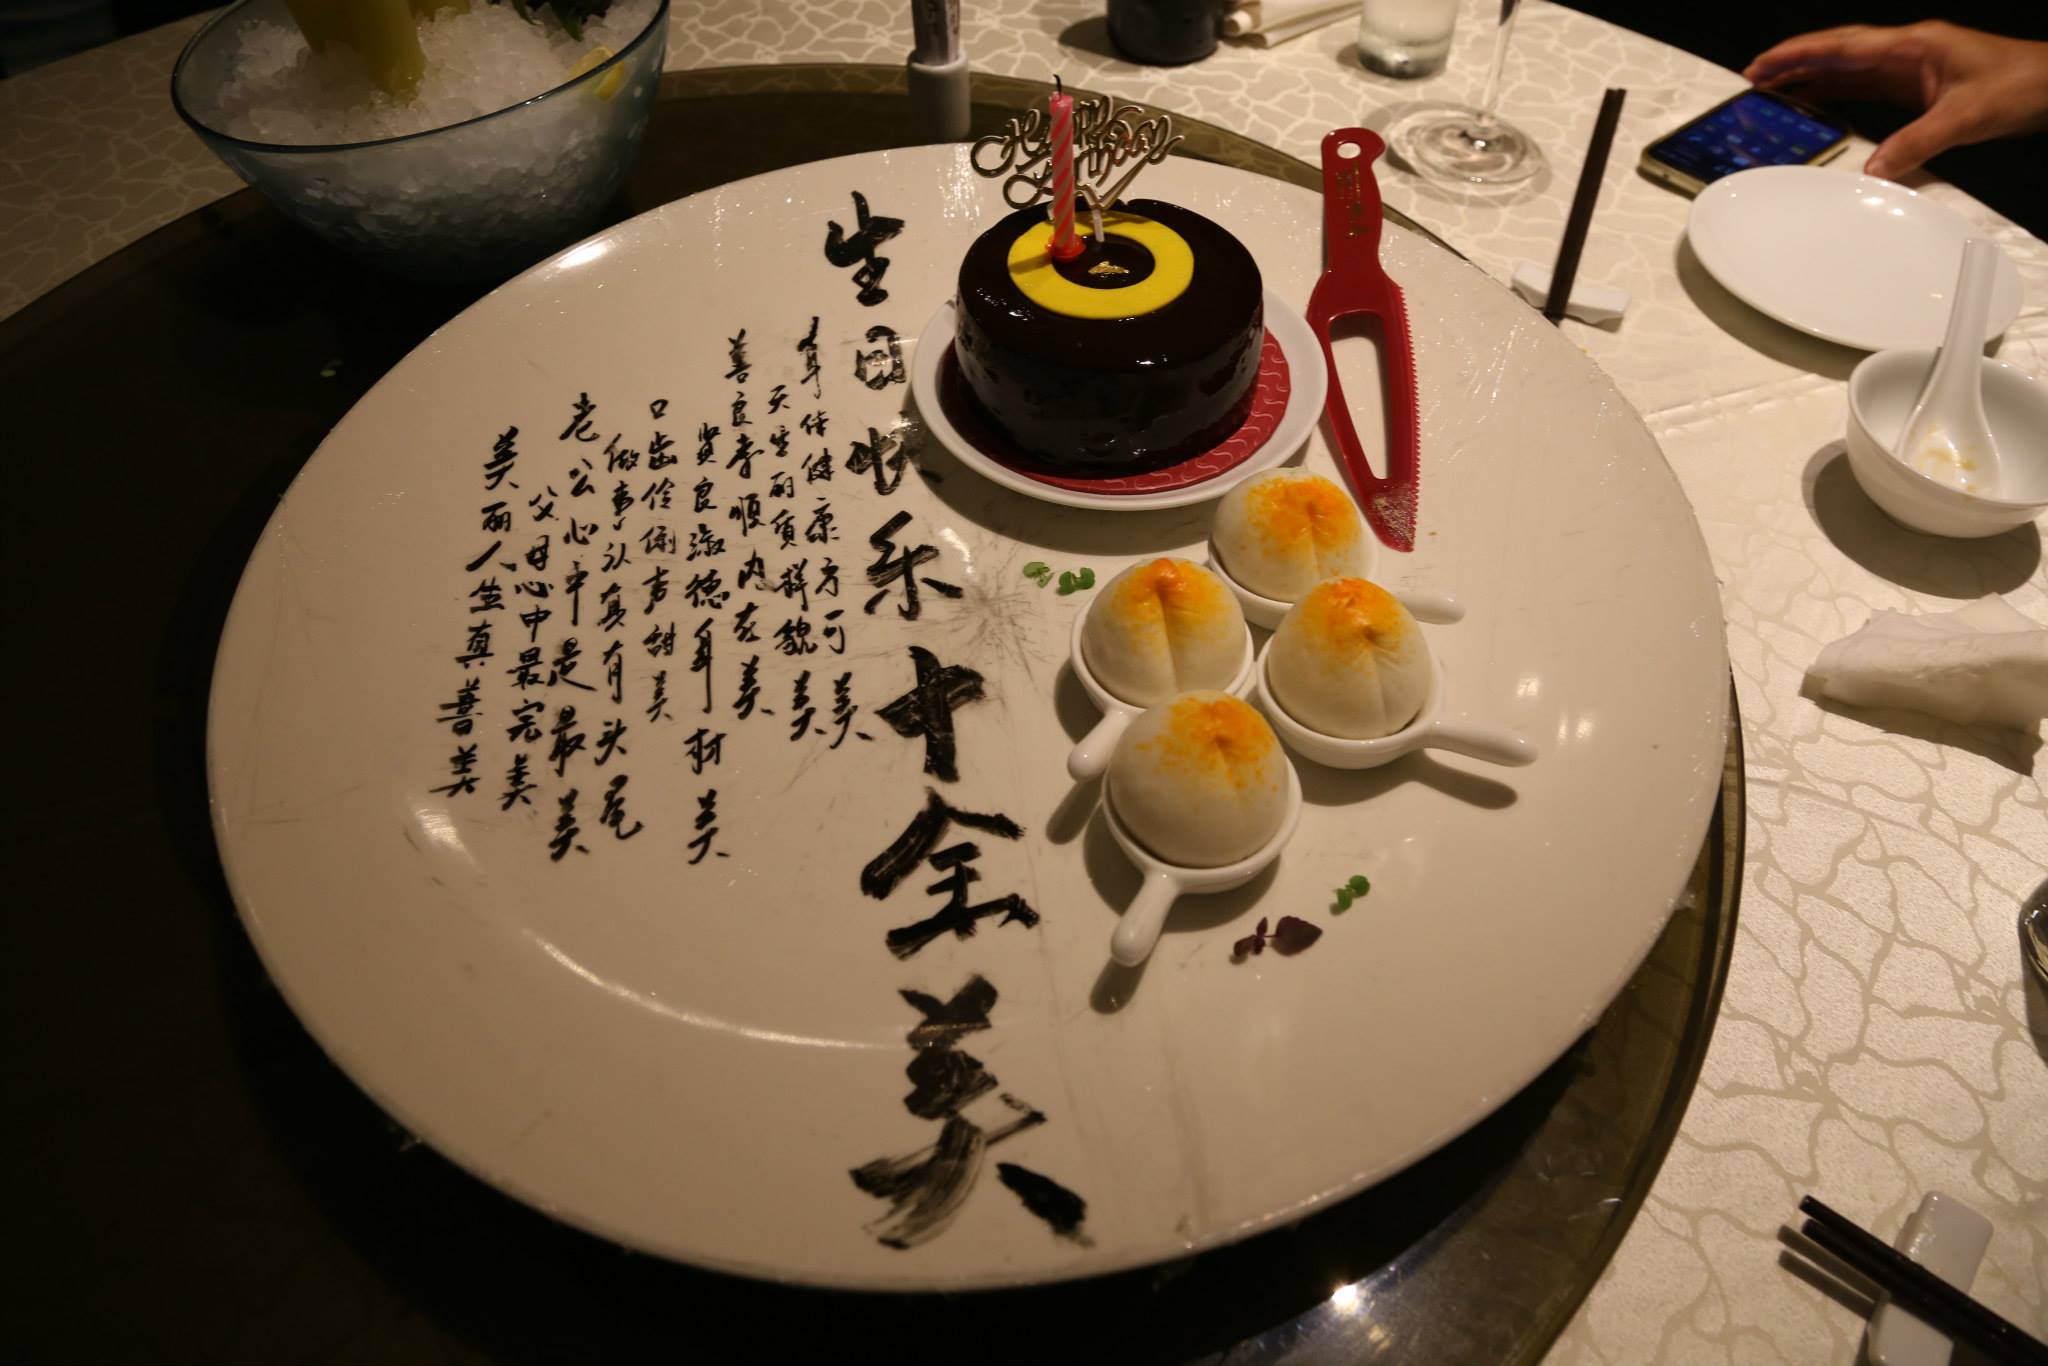 Happy Birthday
生日快乐十全美
身体健康方可美
天生丽质样貌美
善良孝顺内在美
贤良淑德身材美
口齿伶俐声甜美
做事认真有头尾
老公心中是最美
父母心中最完美
美丽人生真善美